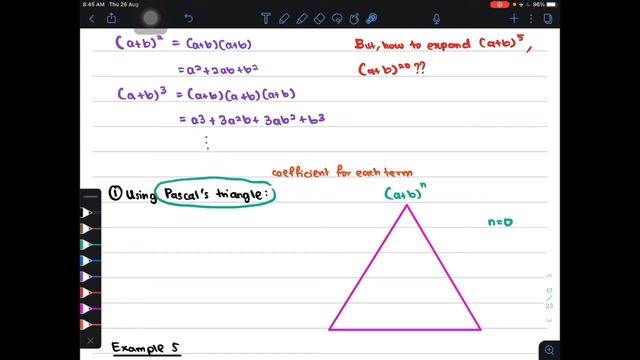 8:45 AM Thu 26 Aug
96%
(a+b)² = (a+b)(a+b)
= a²+2ab+b²
(a+b)³ = (a+b)(a+b)(a+b)
= a3 + 3a²b + 3ab² + b³
⋮
But, how to expand (a+b)⁵,
(a+b)²⁰??
coefficient for each term
① Using Pascal's triangle:
(a+b)ⁿ
n=0
17
/
23
Example 5